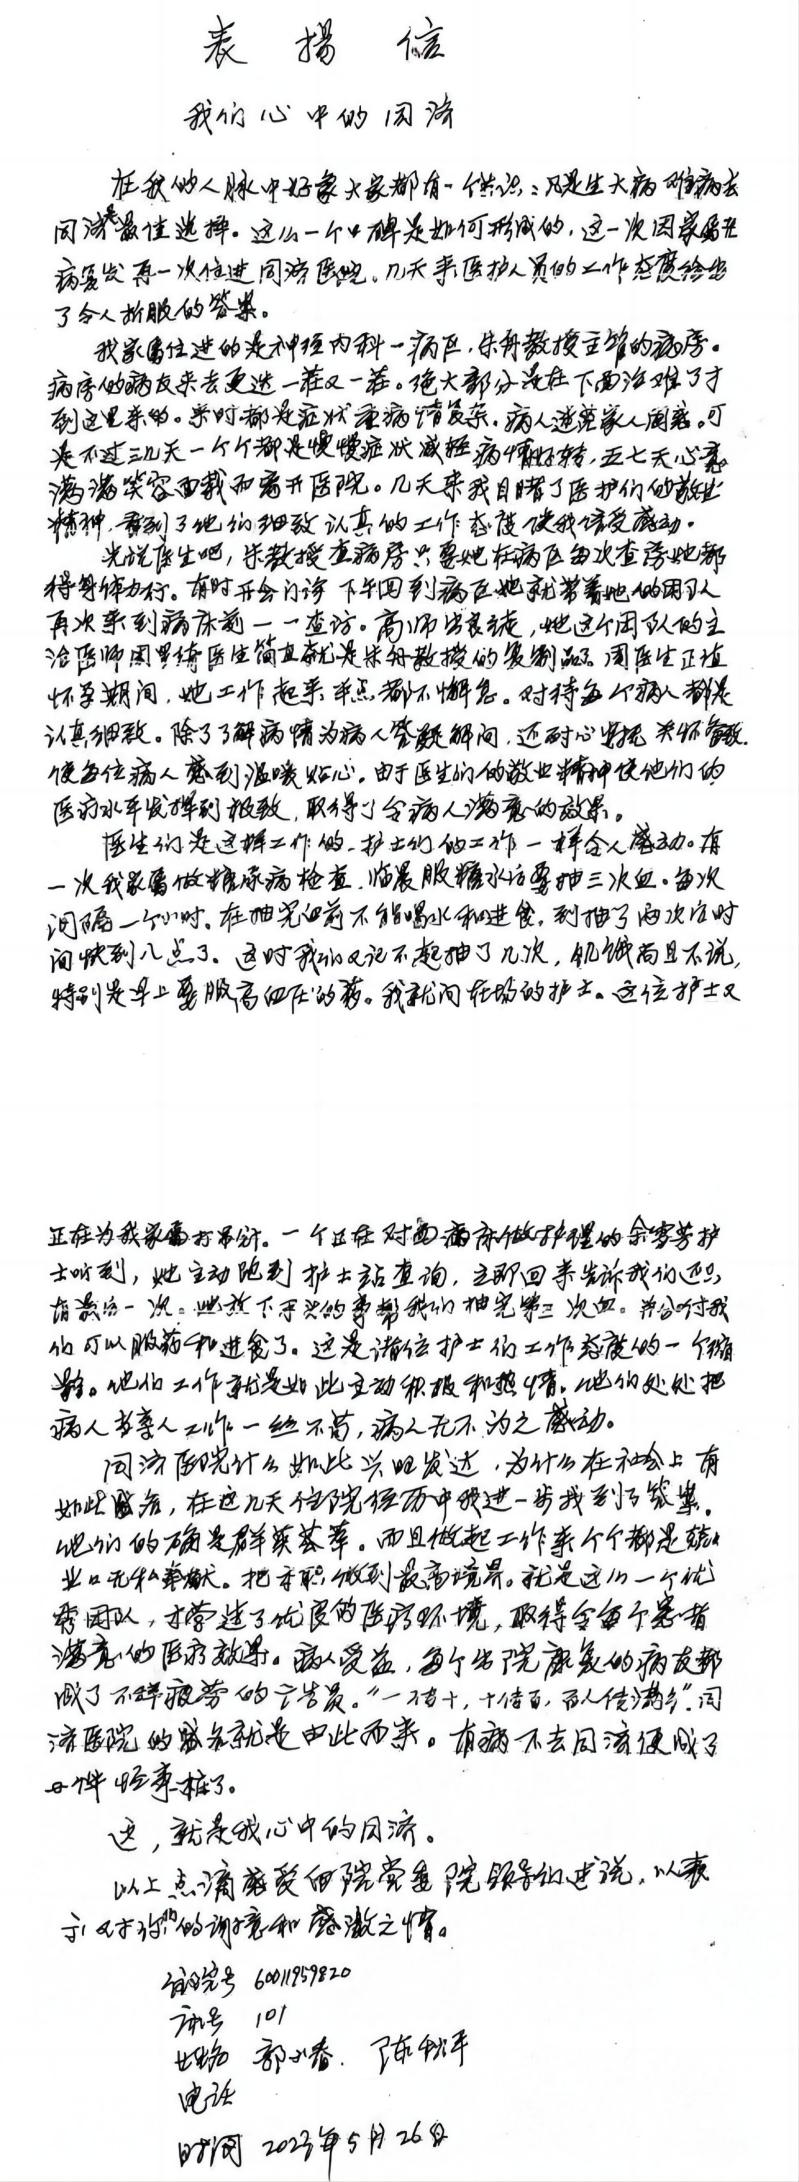 表揚信
我们心中的同济
在我的人脉中好象大家都有一个共识：凡是生大病难病去
同济是最佳选择。这么一个口碑是如何形成的，这一次因家属
病复发再一次住进同济医院。几天来医护人员的工作态度给出
了令人折服的答案。
我家属住进的是神经内科一病区，朱舟教授主管的病房。
病房的病友来去更迭一茬又一茬。绝大部分是在下面治难了才
到这里来的。来时都是症状重病情复杂。病人迷茫家人困惑。可
是不过三几天一个个都是慢慢症状减轻病情好转，五七天心意
满满笑容面载而离开医院。几天来我目睹了医护们的敬业
精神，看到了他们细致认真的工作态度使我倍受感动。
先说医生吧，朱教授查病房只要她在病区每次查房她都
得身体力行。有时开会门诊下午回到病区她就带着她的团队
再次来到病床前一一查访。高师出良徒，她这个团队的主
治医师周里绮医生简直就是朱舟教授的复制品。周医生正值
怀孕期间，她工作起来半点都不懈怠。对待每个病人都是
认真细致。除了了解病情为病人答疑解问，还耐心安抚关怀备致.
使每位病人感到温暖贴心。由于医生们的敬业精神使他们的
医疗水平发挥到极致，取得了令病人满意的效果。
医生们是这样工作的、护士们的工作一样令人感动。有
一次我家属做糖尿病检查，临晨服糖水后要抽三次血。每次
间隔一个小时。在抽完血前不能喝水和进食，到抽了两次后时
间快到八点了。这时我们又记不起抽了几次，饥饿尚且不说，
特别是早上要服高血压的药。我就问在场的护士。这位护士又
正在为我家属打吊针。一个正在对面病床做护理的余雪芳护
士听到，她主动跑到护士站查询，立即回来告诉我们还只
有最后一次。她放下手头的事帮我们抽完第三次血。并吩咐我
们可以服药和进食了。这是诸位护士们工作态度的一个缩
影。他们工作就是如此主动积极和热情。他们处处把
病人当亲人工作一丝不苟，病人无不为之感动。
同济医院什么如此兴旺发达，为什么在社会上有
如此盛名，在这几天住院经历中我进一步找到了答案。
他们的确是群英荟萃。而且做起工作来个个都是兢兢
业业无私奉献。把本职做到最高境界。就是这么一个优
秀团队，才营造了优良的医疗环境，取得令每个患者
满意的医疗效果。病人受益，每个出院康复的病友都
成了不辞疲劳的广告员。“一传十，十传百，百人传满乡”.同
济医院的盛名就是由此而来。有病不去同济便成了
一件怪事了。
这，就是我心中的同济。
以上点滴感受向院党委院领导们述说，以表
示对你们的谢意和感激之情。
住院号 6001959820
床号 101
姓名 郭小春. 陈秋平
电话
时间 2023年5月26日